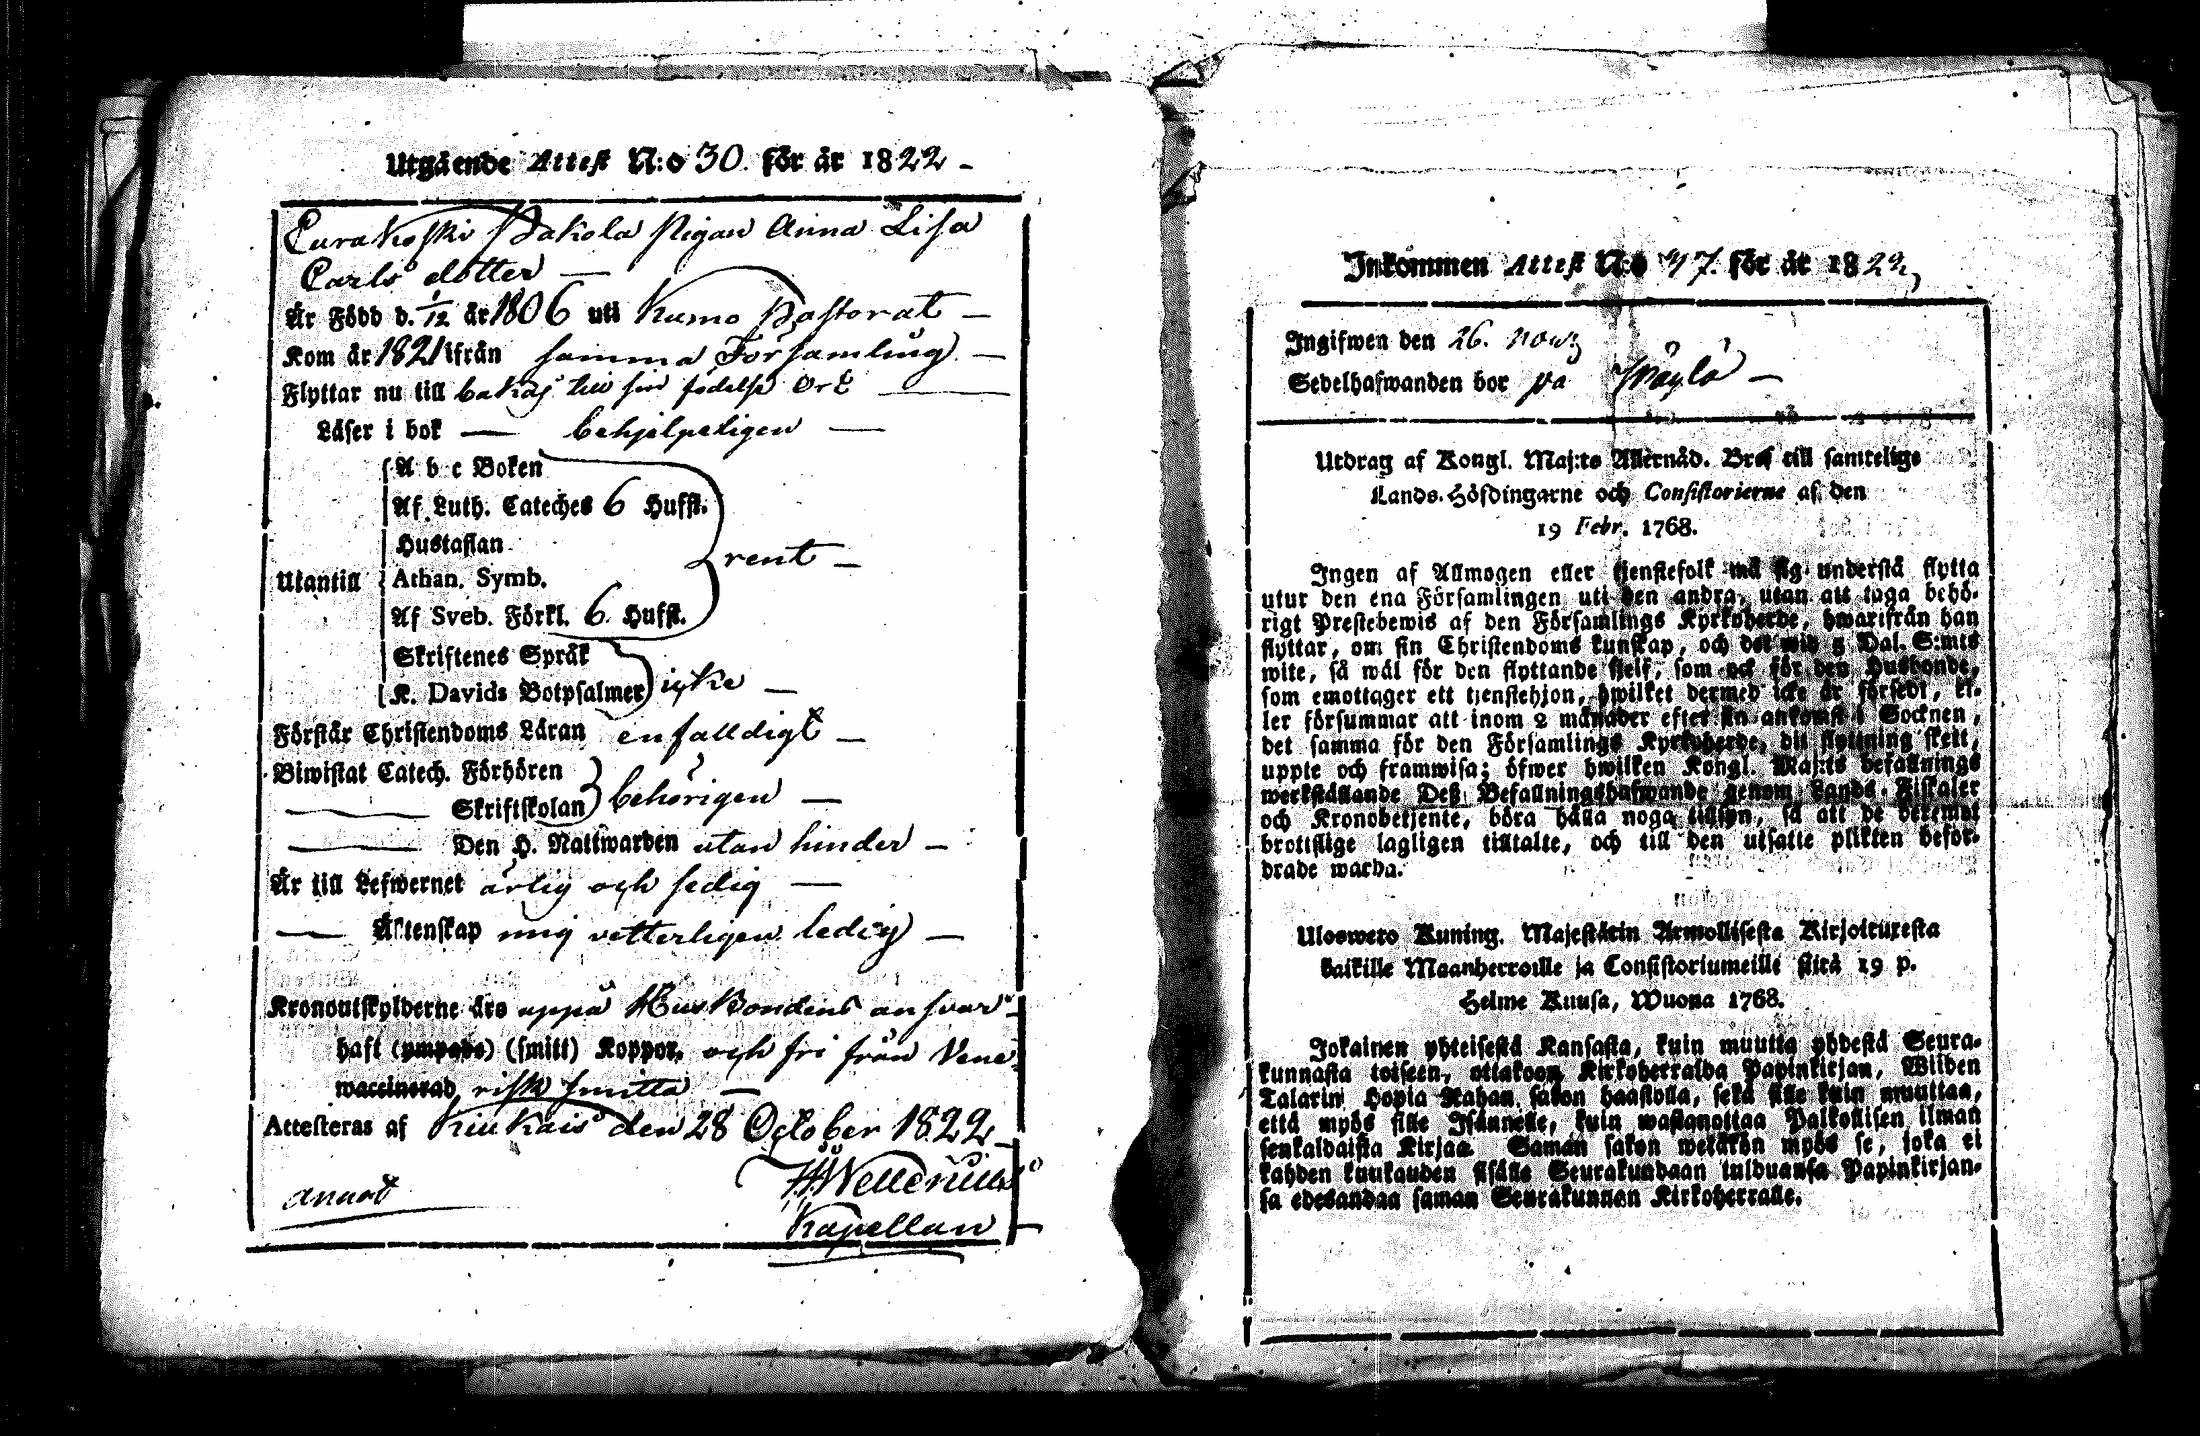 Utgående Attest N:o 30. för år 1822 -
Eurakoski Pakola Pigan Anna Lisa
Carls dotter —
Är Född d. 1/12 år 1806 uti Kumo Pastorat —
Kom år 1821 ifrån samma Församling. —
Flyttar nu till bakas till sin födelse Ort —
Läser i bok — behjelpeligen —
A b c Boken
Af Luth. Cateches 6 Hufst.
Hustaflan
Utantill Athan. Symb. rent —
Af Sveb. Förkl. 6. Hufst.
Skriftenes Språk
K. Davids Botpsalmer icke —
Förstår Christendoms Läran enfalldigt —
Biwistat Catech. Förhören
— Skriftskolan behörigen —
— Den H. Nattwarden utan hinder —
Är till Lefwernet ärlig och sedig —
— Äktenskap mig vetterligen ledig —
Kronoutskylderne äro uppå Husbondens ansvar
haft (ympade) (smitt) Koppor, och fri från Vene
waccinerad risk smitta —
Attesteras af Kiukais den 28 October 1822 —
Kapellan —
Inkommen Attest N:o 47. för år 1822,
Ingifwen den 26. Nov.
Sedelhafwanden bor på
Utdrag af Kongl. Maj:ts Allernåd. Bref till samtelige
Lands-Höfdingarne och Consistorierne af den
19 Febr. 1768.
Ingen af Allmogen eller tjenstefolk må sig understå flytta
utur den ena Församlingen uti den andra, utan att taga behö-
rigt Prestebewis af den Församlings Kyrkoherde, hwarifrån han
flyttar, om sin Christendoms kunskap, och det wid 5 Dal. S:mts
wite, så wäl för den flyttande sjelf, som ock för den Husbonde,
som emottager ett tjenstehjon, hwilket dermed icke är försedt, el-
ler försummar att inom 2 månader efter sin ankomst i Socknen,
det samma för den Församlings Kyrkoherde, dit flyttning skett,
uppte och framwisa; öfwer hwilken Kongl. Maj:ts befallnings
werkställande Deß Befallningshafwande genom Lands-Fiskaler
och Kronobetjente, böra hålla noga tillsyn, så att de deremot
brottslige lagligen tilltalte, och till den utsatte plikten befor-
drade warda.
Uloswero Kuning. Majestätin Armollisesta Kirjoituxesta
kaikille Maanherroille ja Consistoriumeille siitä 19 p.
Helme Kuusa, Wuona 1768.
Jokainen yhteisestä Kansasta, kuin muutta yhdestä Seura-
kunnasta toiseen, ottakoon Kirkoherralda Papinkirjan, Wiiden
Talarin Hopia Rahan sakon haastolla, sekä sille kuin muuttaa,
että myös sille Isännelle, kuin wastanottaa Palkollisen ilman
senkaldaista Kirjaa. Saman sakon wetäkön myös se, joka ei
kahden kuukauden sisälle Seurakundaan tulduansa Papinkirjan-
sa edesandaa saman Seurakunnan Kirkoherralle.